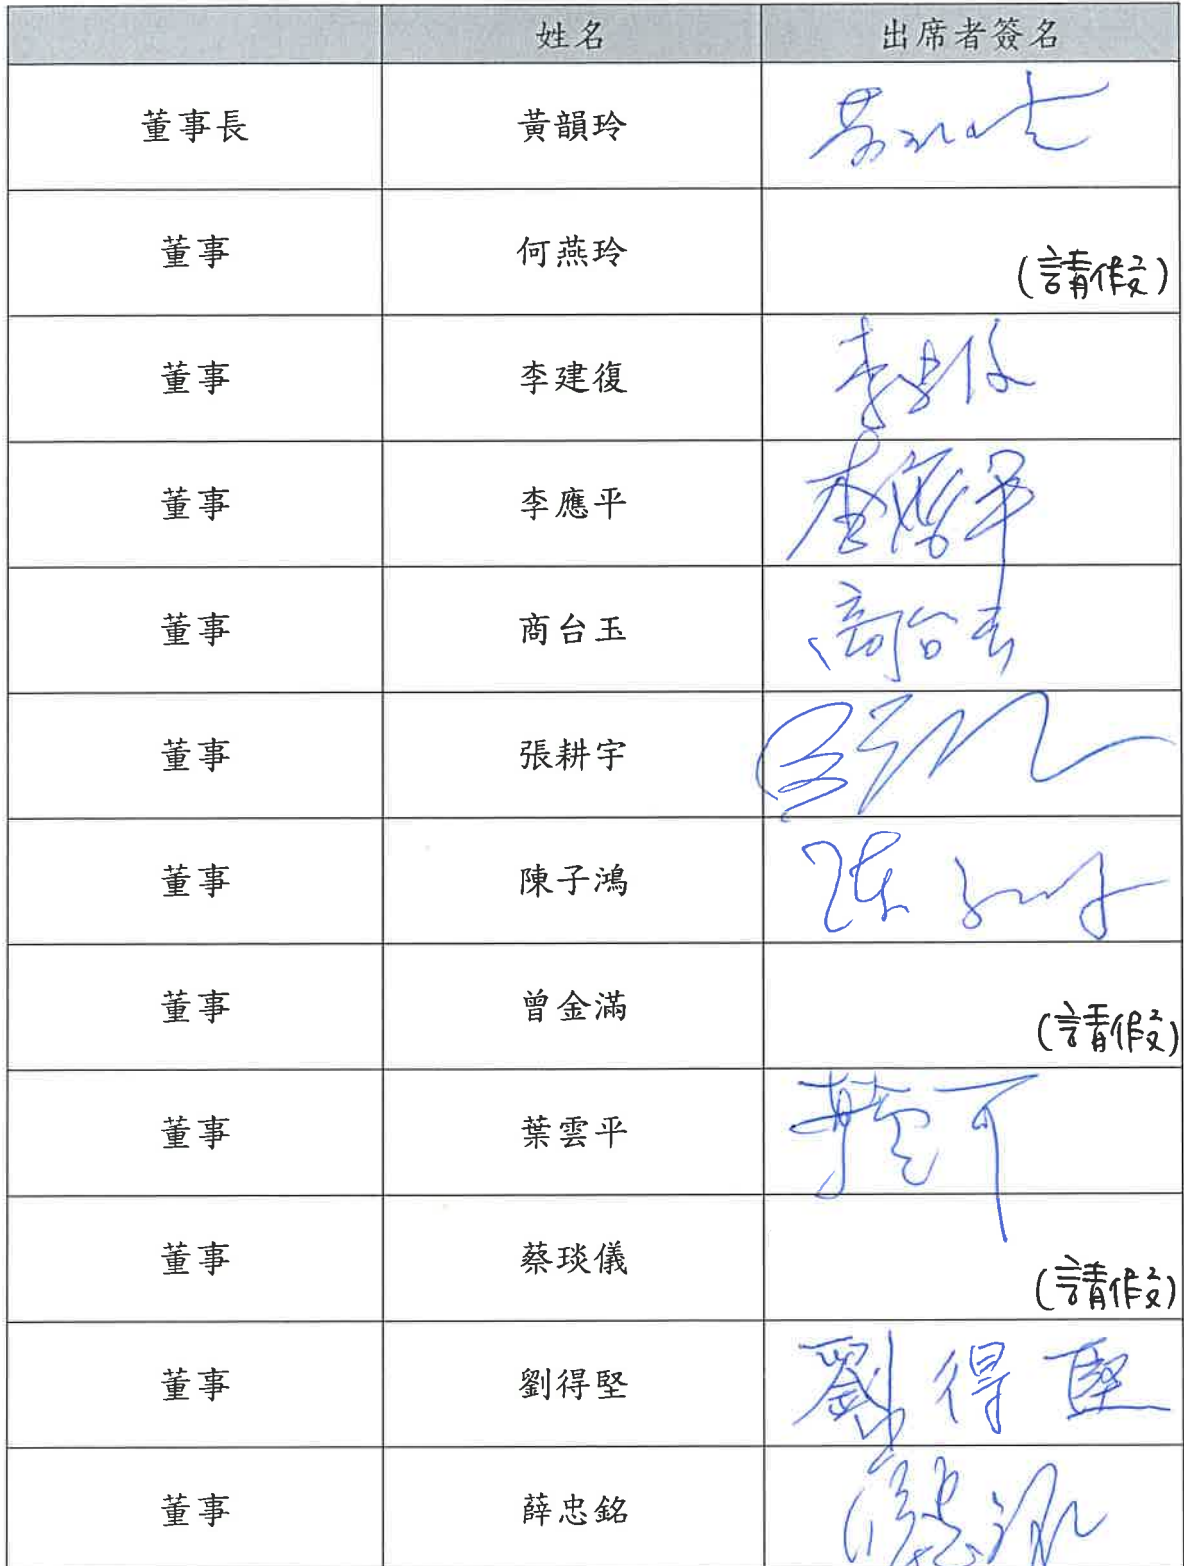 姓名 出席者簽名
董事長 黃韻玲
董事 何燕玲 (請假)
董事 李建復 李建復
董事 李應平 李應平
董事 商台玉 商台玉
董事 張耕宇
董事 陳子鴻 陳子鴻
董事 曾金滿 (請假)
董事 葉雲平
董事 蔡琰儀 (請假)
董事 劉得堅 劉得堅
董事 薛忠銘 薛忠銘